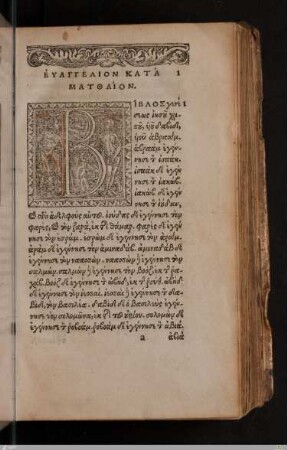 ΕΥΑΓΓΕΛΙΟΝ ΚΑΤΑ 1
ΜΑΤΘΑΙΟΝ.
ΒΙΒΛΟΣ
ἀβραάμ.
τὸν ἰσαάκ.
ἰσαὰκ δὲ
τὸν ἰακώβ.
ἰακὼβ
τὸν ἰούδαν,
καὶ τοὺς ἀδελφοὺς αὐτοῦ. ἰούδας δὲ ἐγέννησε τὸν
φαρὲς, καὶ τὸν ζαρὰ, ἐκ τῆς θάμαρ. φαρὲς δὲ ἐγέν
νησε τὸν ἐσρώμ. ἐσρὼμ δὲ ἐγέννησε τὸν ἀράμ.
ἀρὰμ δὲ ἐγέννησε τὸν ἀμιναδάβ. ἀμιναδὰβ δὲ
ἐγέννησε τὸν ναασσών. ναασσὼν δὲ ἐγέννησε τὸν
σαλμών. σαλμὼν δὲ ἐγέννησε τὸν βοὸζ, ἐκ τῆς ῥα
χάβ. βοὸζ δὲ ἐγέννησε τὸν ὠβὴδ, ἐκ τῆς ῥούθ. ὠβὴδ
δὲ ἐγέννησε τὸν ἰεσσαί. ἰεσσαὶ δὲ ἐγέννησε τὸν δα
βὶδ, τὸν βασιλέα. δαβὶδ δὲ ὁ βασιλεὺς ἐγέν
νησε τὸν σολομῶνα, ἐκ τῆς τοῦ οὐρίου. σολομὼν δὲ
ἐγέννησε τὸν ῥοβοάμ. ῥοβοὰμ δὲ ἐγέννησε τὸν ἀβιά.
a ἀβιὰ